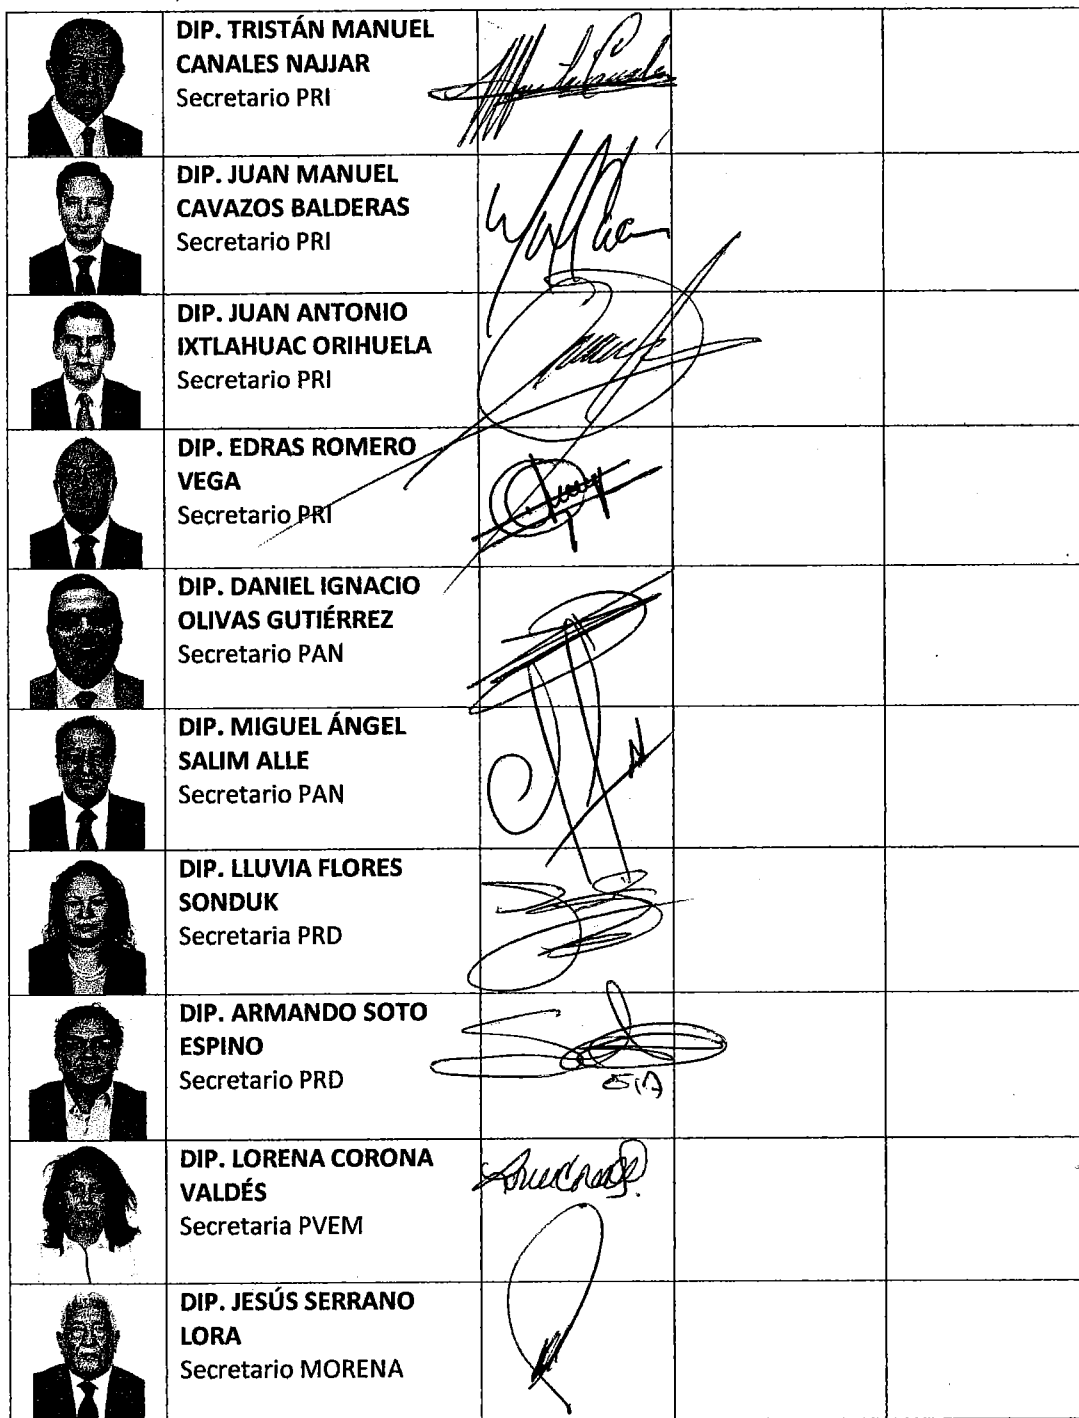 DIP. TRISTÁN MANUEL
CANALES NAJJAR
Secretario PRI
DIP. JUAN MANUEL
CAVAZOS BALDERAS
Secretario PRI
DIP. JUAN ANTONIO
IXTLAHUAC ORIHUELA
Secretario PRI
DIP. EDRAS ROMERO
VEGA
Secretario PRI
DIP. DANIEL IGNACIO
OLIVAS GUTIÉRREZ
Secretario PAN
DIP. MIGUEL ÁNGEL
SALIM ALLE
Secretario PAN
DIP. LLUVIA FLORES
SONDUK
Secretaria PRD
DIP. ARMANDO SOTO
ESPINO
Secretario PRD
DIP. LORENA CORONA
VALDÉS
Secretaria PVEM
DIP. JESÚS SERRANO
LORA
Secretario MORENA